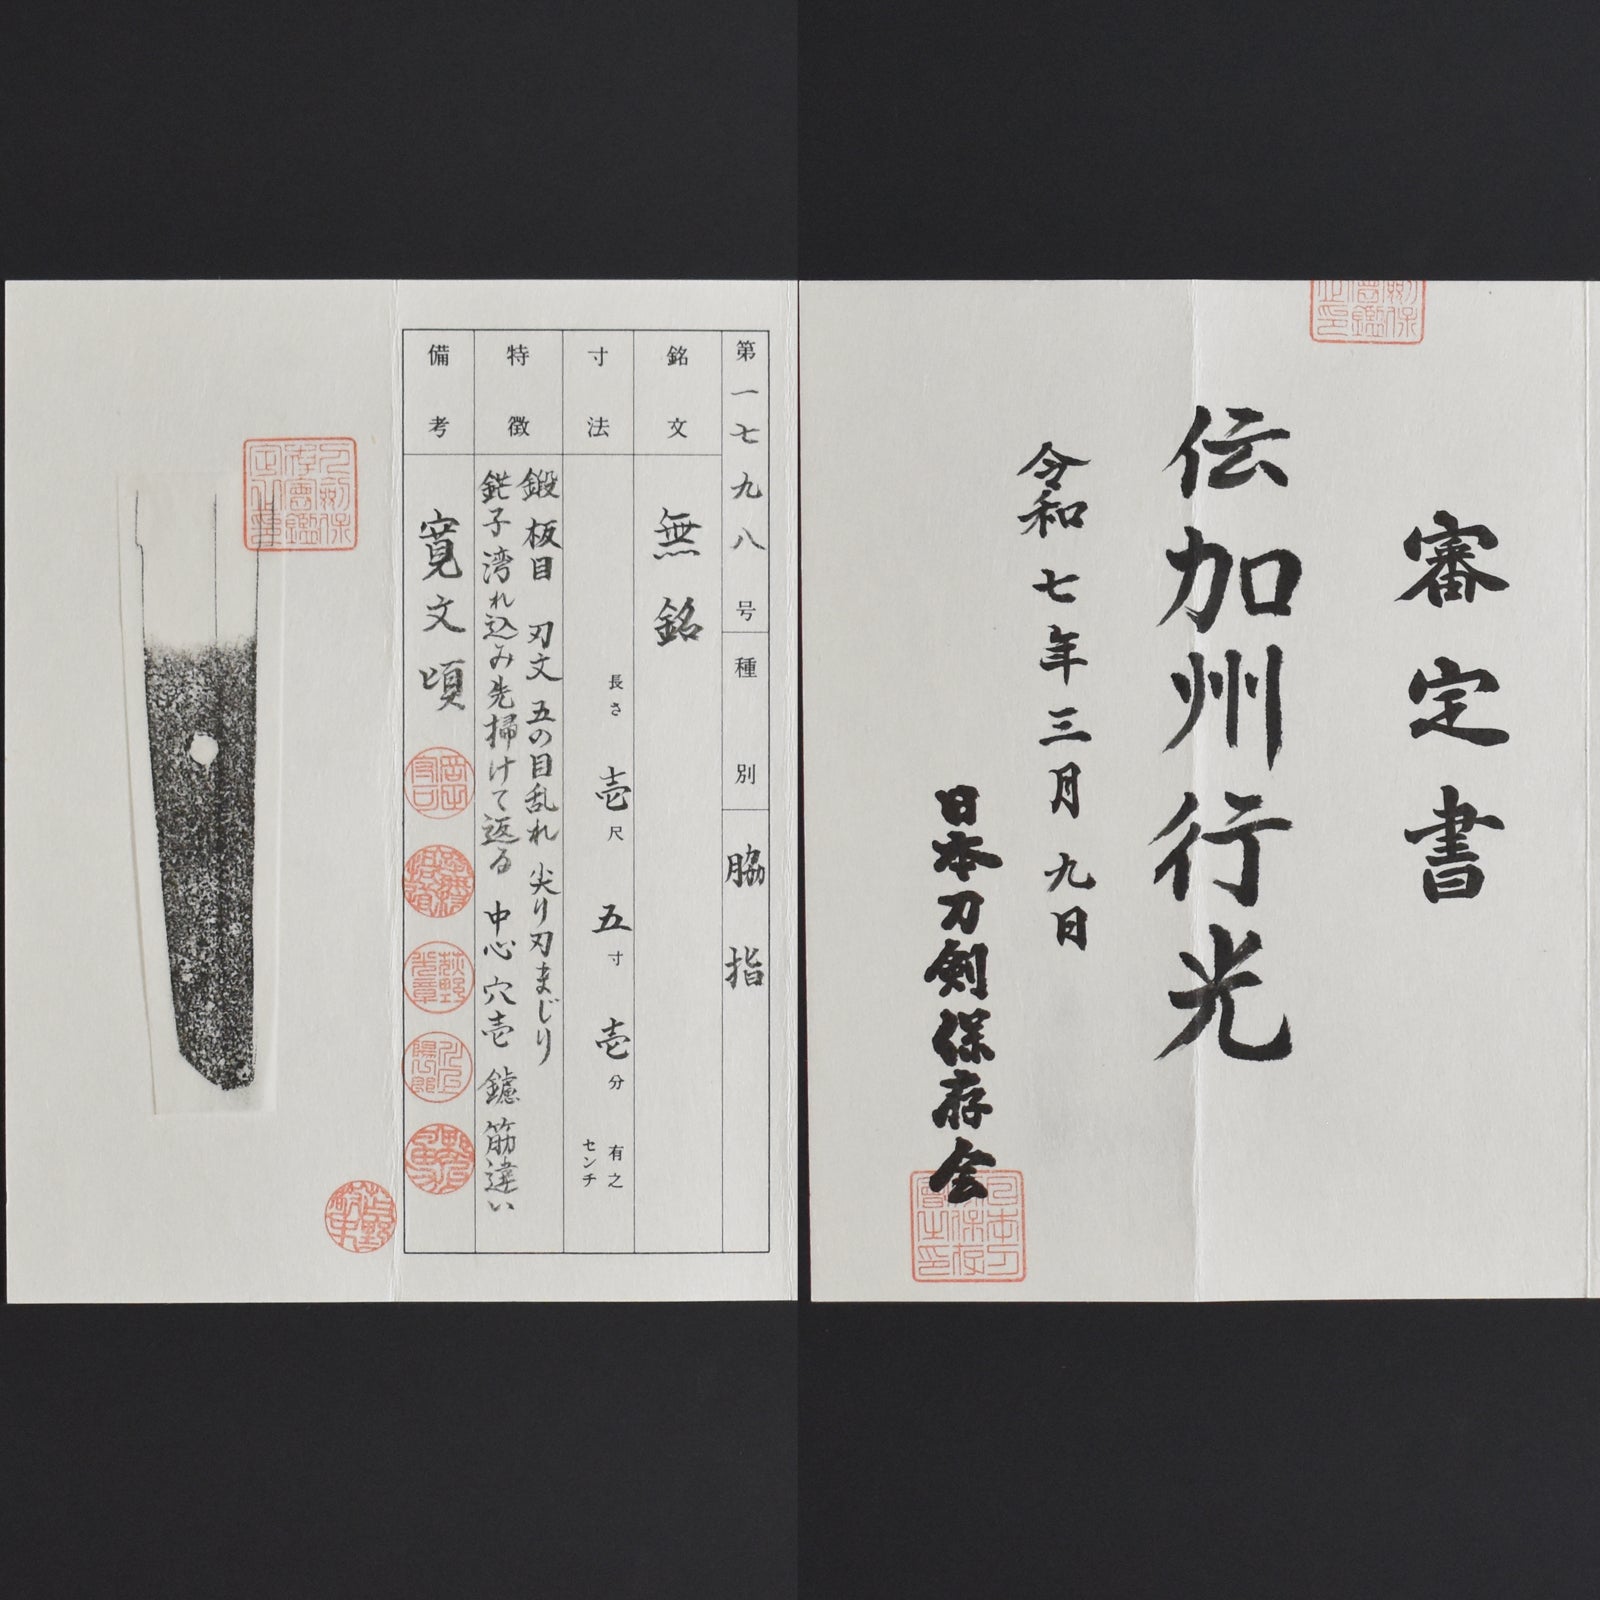 審定書
伝加州行光
令和七年三月九日
日本刀剣保存会
第一七九八号
種別 脇指
銘文 無銘
寸法 長さ 壱尺 五寸 壱分 有之
センチ
特徴 鍛 板目 刃文 五の目乱れ 尖り刃まじり
鋩子湾れ込み先掃けて返る 中心 穴壱 鑢 筋違い
備考 寛文頃